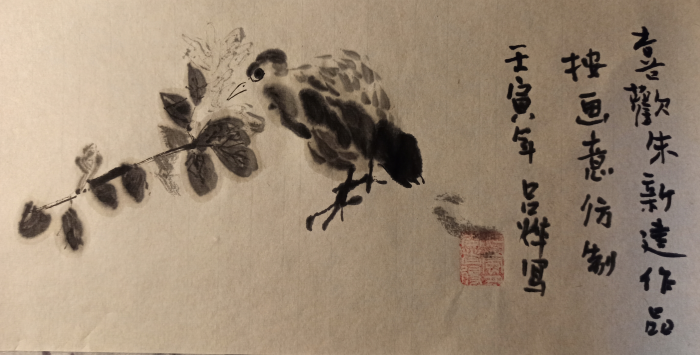 喜歡朱新建作品
按画意仿制
壬寅年吕烨写